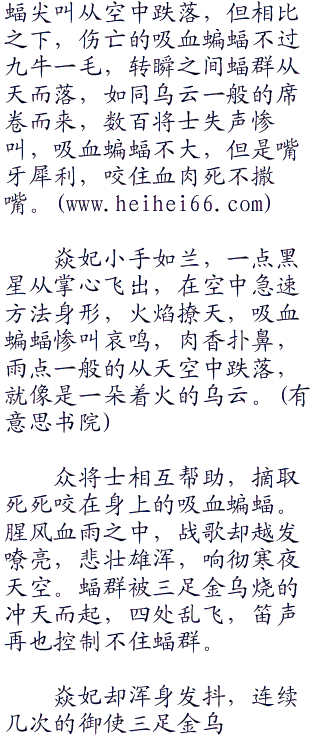 蝠尖叫从空中跌落，但相比
之下，伤亡的吸血蝙蝠不过
九牛一毛，转瞬之间蝠群从
天而落，如同乌云一般的席
卷而来，数百将士失声惨
叫，吸血蝙蝠不大，但是嘴
牙犀利，咬住血肉死不撒
嘴。(www.heihei66.com)
焱妃小手如兰，一点黑
星从掌心飞出，在空中急速
方法身形，火焰撩天，吸血
蝙蝠惨叫哀鸣，肉香扑鼻，
雨点一般的从天空中跌落，
就像是一朵着火的乌云。(有
意思书院)
众将士相互帮助，摘取
死死咬在身上的吸血蝙蝠。
腥风血雨之中，战歌却越发
嘹亮，悲壮雄浑，响彻寒夜
天空。蝠群被三足金乌烧的
冲天而起，四处乱飞，笛声
再也控制不住蝠群。
焱妃却浑身发抖，连续
几次的御使三足金乌